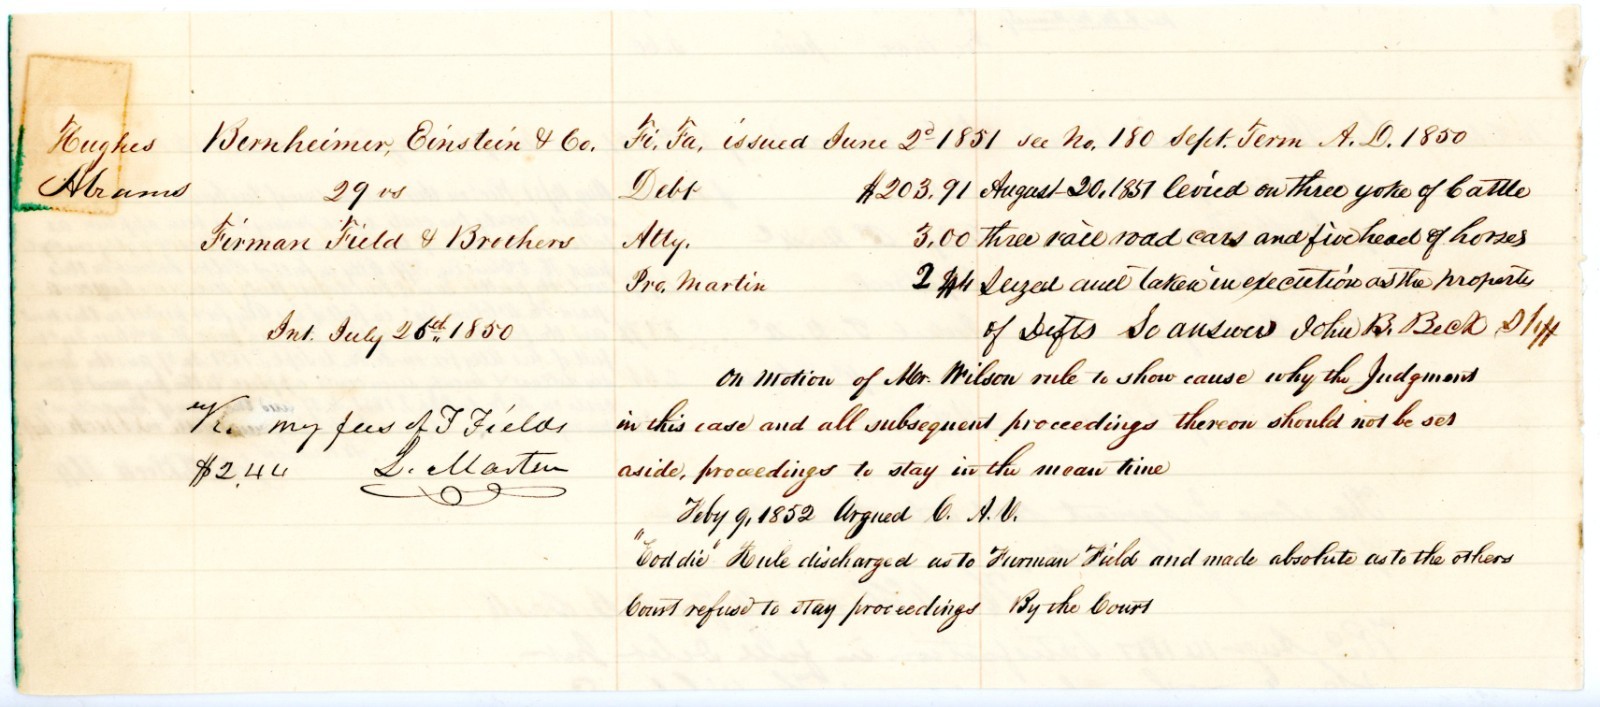 Hughes
Abrams
Bernheimer, Einstein & Co.
29 vs
Firman Field & Brothers
Int. July 26th, 1850
my fees of F Fields
$2,44 L. Martin
Fi. Fa. issued June 2d 1851 see No. 180 Sept. Term A. D. 1850
Debt $203.91 August 20, 1851 levied on three yoke of Cattle
Atty. 3,00 three rail road cars and five head of horses
Pro. Martin 2 44 Seized and taken in execution as the property
of Defts So answers John B. Beck Shff
On motion of Mr. Wilson rule to show cause why the Judgment
in this case and all subsequent proceedings thereon should not be set
aside, proceedings to stay in the mean time
Feby 9, 1852 Argued C. A. V.
"Eod die" Rule discharged as to Furman Field and made absolute as to the others
Court refused to stay proceedings By the Court